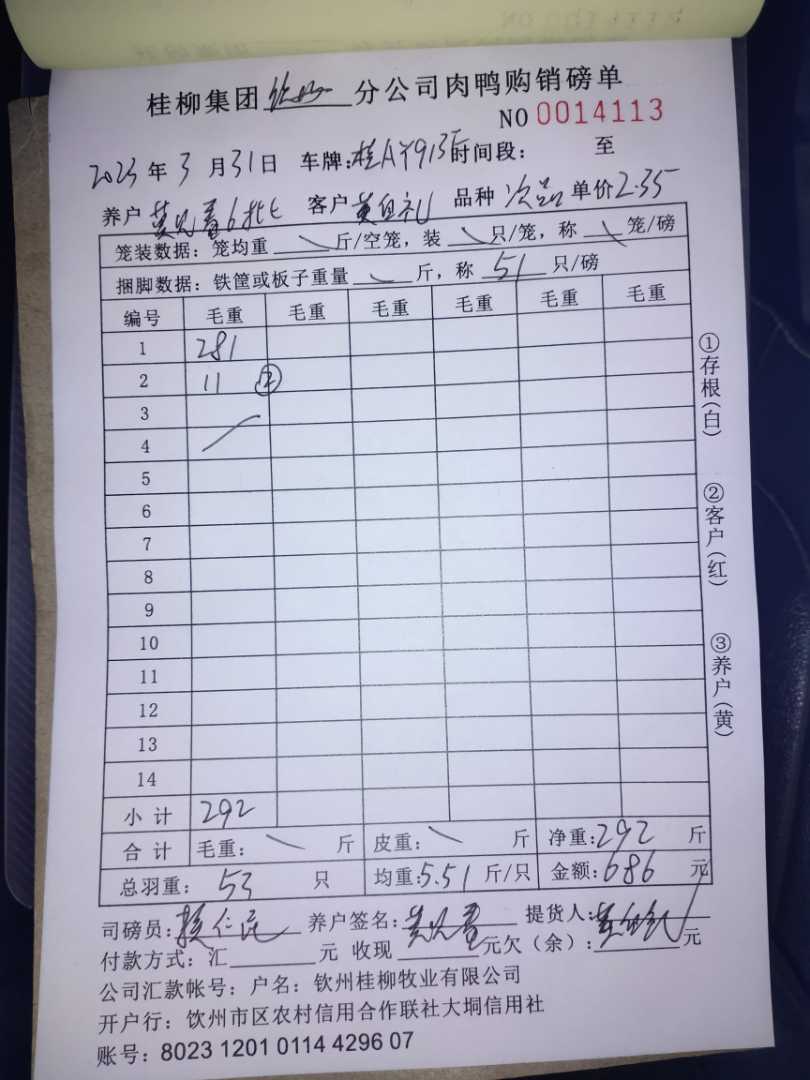 桂柳集团钦州分公司肉鸭购销磅单
NO 0014113
2023年3月31日 车牌:桂A 时间段: 至
养户 6批 客户 黄 品种 次品 单价2.35
笼装数据: 笼均重 斤/空笼, 装 只/笼, 称 笼/磅
捆脚数据: 铁筐或板子重量 斤, 称 51 只/磅
编号 毛重 毛重 毛重 毛重 毛重 毛重
1 281
2 11 ②
3
4
5
6
7
8
9
10
11
12
13
14
小计 292
合计 毛重: 斤 皮重: 斤 净重:292 斤
总羽重: 53 只 均重:5.51 斤/只 金额:686 元
司磅员: 养户签名: 提货人:
付款方式: 汇 元 收现 元欠(余): 元
公司汇款帐号: 户名: 钦州桂柳牧业有限公司
开户行: 饮州市区农村信用合作联社大垌信用社
账号: 8023 1201 0114 4296 07
①存根(白)
②客户(红)
③养户(黄)